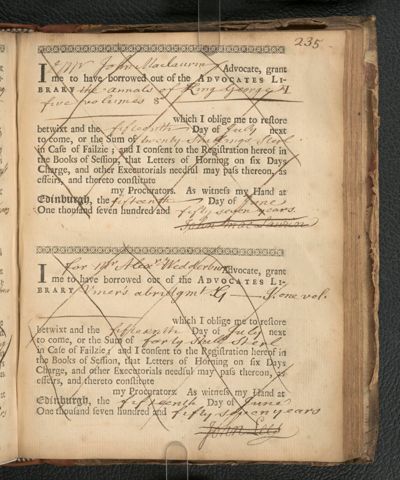 235.
I Mr John Maclaurin Advocate, grant
me to have borrowed out of the ADVOCATES LI-
BRARY the annals of King George
five volumes 8º
which I oblige me to restore
betwixt and the fifteenth Day of July next
to come, or the Sum of twenty Shillings Sterl:
in Case of Failzie; and I consent to the Registration hereof in
the Books of Session, that Letters of Horning on six Days
Charge, and other Executorials needful may pass thereon, as
effeirs, and thereto constitute
my Procurators. As witness my Hand at
Edinburgh, the fifteenth Day of June
One thousand seven hundred and fifty seven years.
John
I for Mr Alexr Wedderburn Advocate, grant
me to have borrowed out of the ADVOCATES LI-
BRARY Viners abridgmt G one vol.
which I oblige me to restore
betwixt and the fifteenth Day of July next
to come, or the Sum of forty Shills Sterl
in Case of Failzie; and I consent to the Registration hereof in
the Books of Session, that Letters of Horning on six Days
Charge, and other Executorials needful may pass thereon, as
effeirs, and thereto constitute
my Procurators. As witness my Hand at
Edinburgh, the fifteenth Day of June
One thousand seven hundred and fifty seven years
John Lees